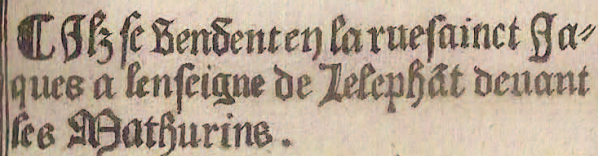 ¶ Ilz se vendent en la rue sainct Ja-
ques a lenseigne de Lelephāt deuant
les Mathurins.